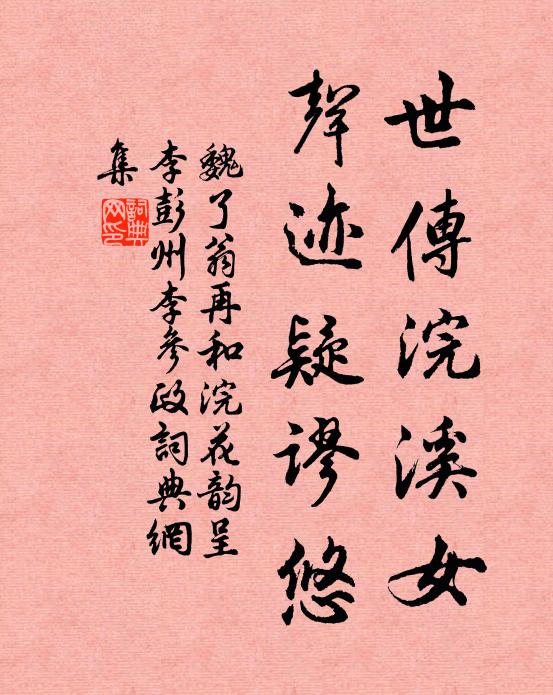 世傳浣溪女
聲迹疑謬悠
魏了翁再和浣花韵呈
李彭州李參政詞典網
集
詞典
网印